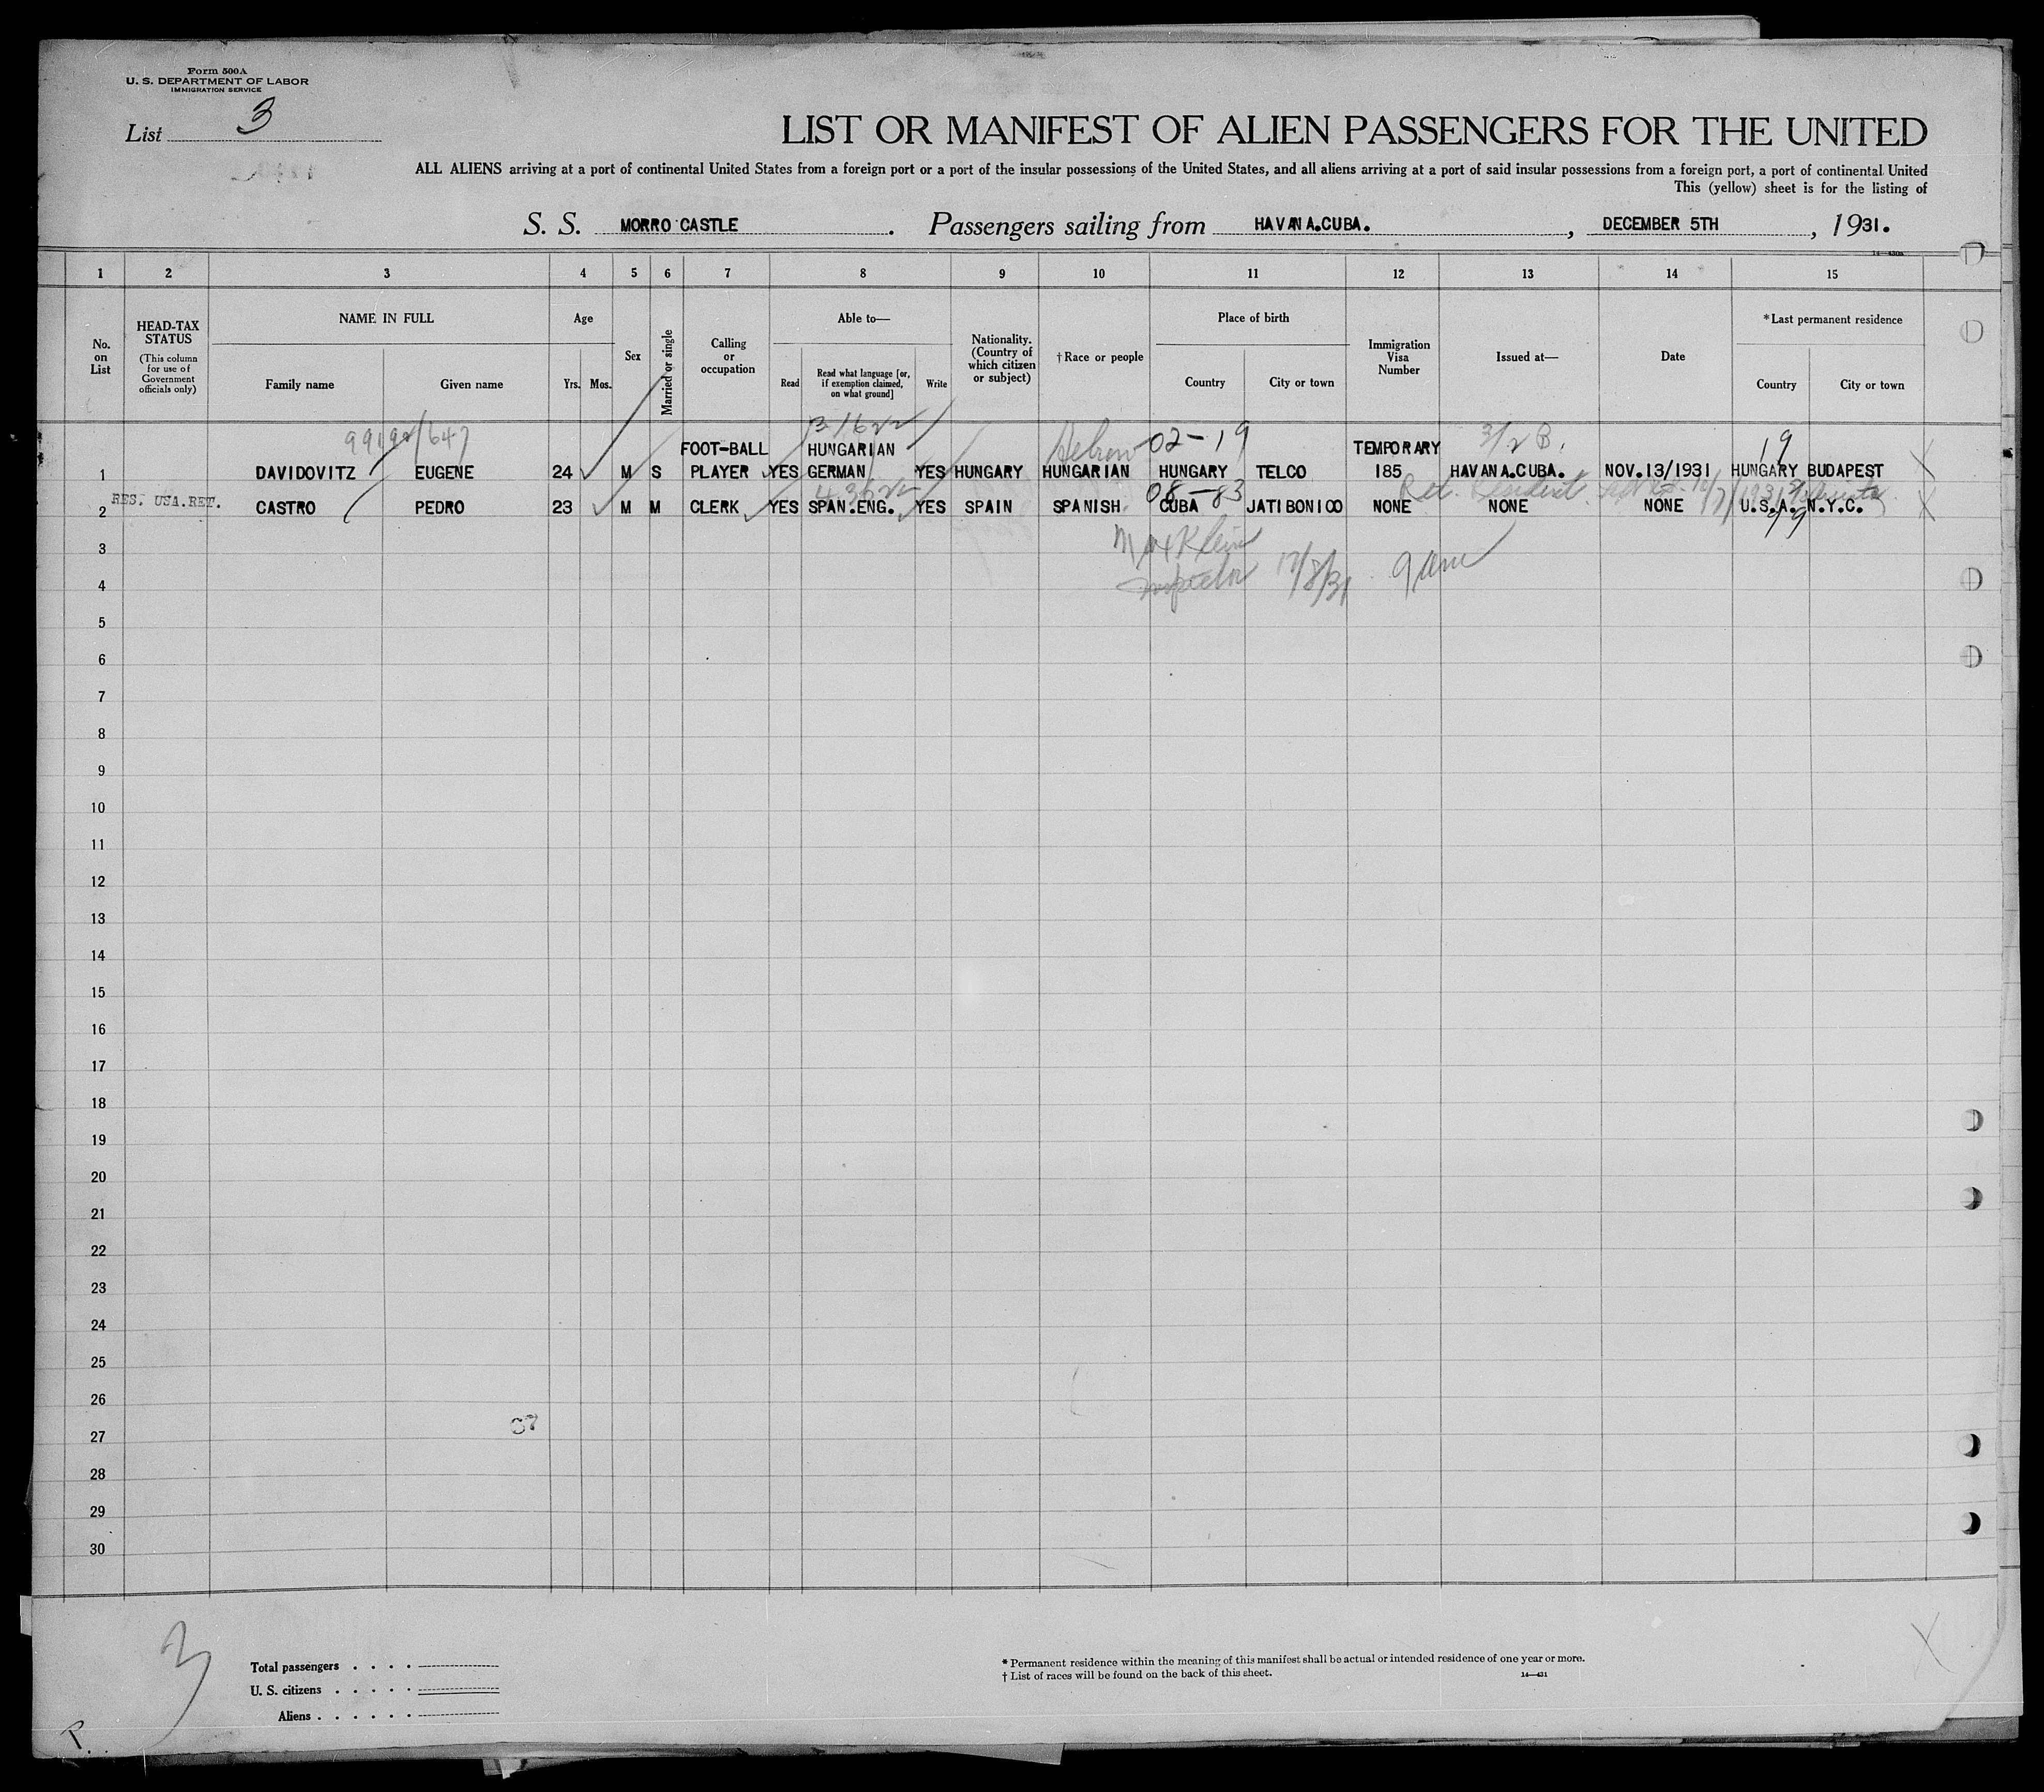 Form 500A
U. S. DEPARTMENT OF LABOR
IMMIGRATION SERVICE
List 3
LIST OR MANIFEST OF ALIEN PASSENGERS FOR THE UNITED
ALL ALIENS arriving at a port of continental United States from a foreign port or a port of the insular possessions of the United States, and all aliens arriving at a port of said insular possessions from a foreign port, a port of continental United
This (yellow) sheet is for the listing of
S. S. MORRO CASTLE. Passengers sailing from HAVANA.CUBA., DECEMBER 5TH, 1931.
1 2 3 4 5 6 7 8 9 10 11 12 13 14 15
No. on List
HEAD-TAX STATUS
(This column for use of Government officials only)
NAME IN FULL
Family name Given name
Age
Yrs. Mos.
Sex
Married or single
Calling or occupation
Able to—
Read
Read what language [or, if exemption claimed, on what ground]
Write
Nationality. (Country of which citizen or subject)
†Race or people
Place of birth
Country City or town
Immigration Visa Number
Issued at—
Date
*Last permanent residence
Country City or town
99192/647 31622 Hebrew 02-19 3/2 B. 19
FOOT-BALL HUNGARIAN TEMPORARY
1 DAVIDOVITZ EUGENE 24 M S PLAYER YES GERMAN YES HUNGARY HUNGARIAN HUNGARY TELCO 185 HAVANA.CUBA. NOV.13/1931 HUNGARY BUDAPEST
RES. USA.RET. 43622 08-83 Ret. Resident
2 CASTRO PEDRO 23 M M CLERK YES SPAN.ENG. YES SPAIN SPANISH CUBA JATIBONICO NONE NONE NONE U.S.A. N.Y.C.
99
3 Max Klein
4 Inspector 12/8/31 9 am
5
6
7
8
9
10
11
12
13
14
15
16
17
18
19
20
21
22
23
24
25
26
27
28
29
30
3
Total passengers
U. S. citizens
Aliens
* Permanent residence within the meaning of this manifest shall be actual or intended residence of one year or more.
† List of races will be found on the back of this sheet. 14—431
P.